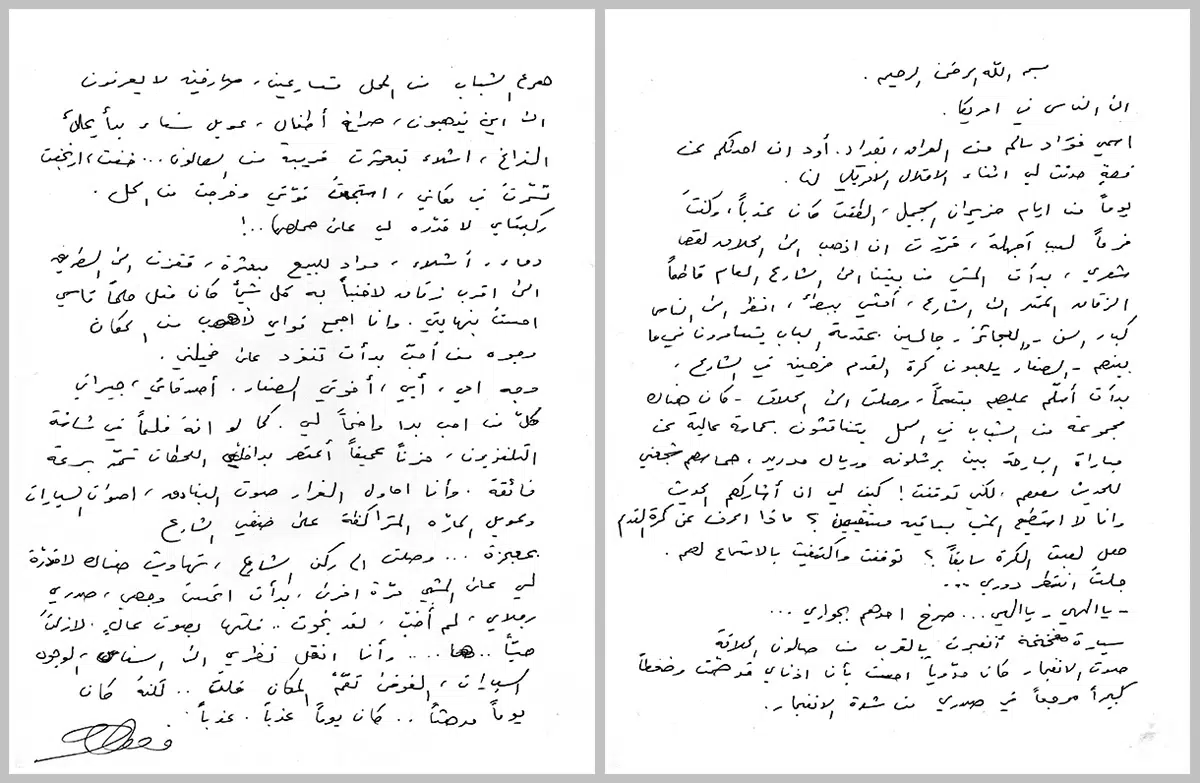 بسم الله الرحمن الرحيم .
الى الناس في امريكا.
اسمي فؤاد سالم من العراق، بغداد. أود ان احدثكم عن
قصةٍ حدثت لي اثناء الاحتلال الامريكي لنا .
يوماً من ايام حزيران الجميل، الطقس كان عذباً، وكنت
فرحاً لسبب أجهلهُ، قررت ان اذهب الى الحلاق لقص
شعري، بدأت المشي من بيتنا الى الشارع العام قاطعاً
الزقاق الممتد الى الشارع، أمشي ببطئ، انظر الى الناس
كبار السن - العجائز - جالسين بمقدمة الباب يتسامرون في ما
بينهم - الصغار يلعبون كرة القدم فرحين في الشارع،
بدأت أسلّم عليهم مبتسماً، وصلت الى الحلاق - كان هناك
مجموعة من الشباب في المحل يتناقشون بحماسة عالية عن
مباراة البارحة بين برشلونه وريال مدريد، حماسهم شجعني
للحديث معهم، لكني توقفت! كيف لي ان أشاركهم الحديث
وانا لا استطيع المشي بساقيه ؟ ماذا اعرف عن كرة القدم
هل لعبت الكرة سابقاً؟ توقفت واكتفيت بالاستماع لهم.
جلست انتظر دوري ...
- ياالهي - ياالهي ... صرخ احدهم بجواري ...
سيارة مفخخة أنفجرت بالقرب من صالون الحلاقة
صوت الانفجار كان مدوياً احسست بأن اذناي قد وضغطاً
كبيراً مرعباً في صدري من شدة الانفجار.
هرع الشباب من المحل متسارعين، لا يعرفون
الى اين يذهبون، صراخ أطفال، عويل نساء بدأ يملئ
الفراغ، اشلاء تبعثرت قريبة من الصالون ... خفت، ارتجفت
تسمّرت في مكاني، استجمعت قوتي وخرجت من المحل.
ركبتاي لا قدره لي على حملها ..!
دماء، أشلاء، مواد للبيع مبعثرة، قفزت الى الطريق
الى اقرب زقاق لاختبأ به كل شيأ كان مثل حلماً قاسي
احسست بنهايتي. وانا اجمع قواي لأهرب من المكان
وجوه من أحبّ بدأت تتفرد على مخيلتي.
وجه امي، أبي، أخوتي الصغار. أصدقائي، جيراني
كلّ من احب بدا واضحاً لي. كما لو انه فلماً في شاشة
التلفزيون، حزناً عميقاً أعتصر بداخلي اللحظات تمرّ بسرعة
فائقة. وأنا احاول الفرار صوت البنادق، اصوات السيارات
وعويل المارّه المتراكضة على ضفتي الشارع
بمعجزة ... وصلت الى ركن الشارع، تهاويت هناك لا قدرة
لي على المشي مرّة اخرى، بدأت اتحسس وجهي، صدري
رجلاي، لم أُصَب، لقد نجوت .. قلتها بصوت عالٍ. لازلتُ
حيّاً .. ها ... وأنا انقل نظري الى الناس، الوجوه
السيارات، الفوضى تعمّ المكان قلت .. لكنهُ كان
يوماً مدهشاً .. كان يوماً عذباً. عذباً.